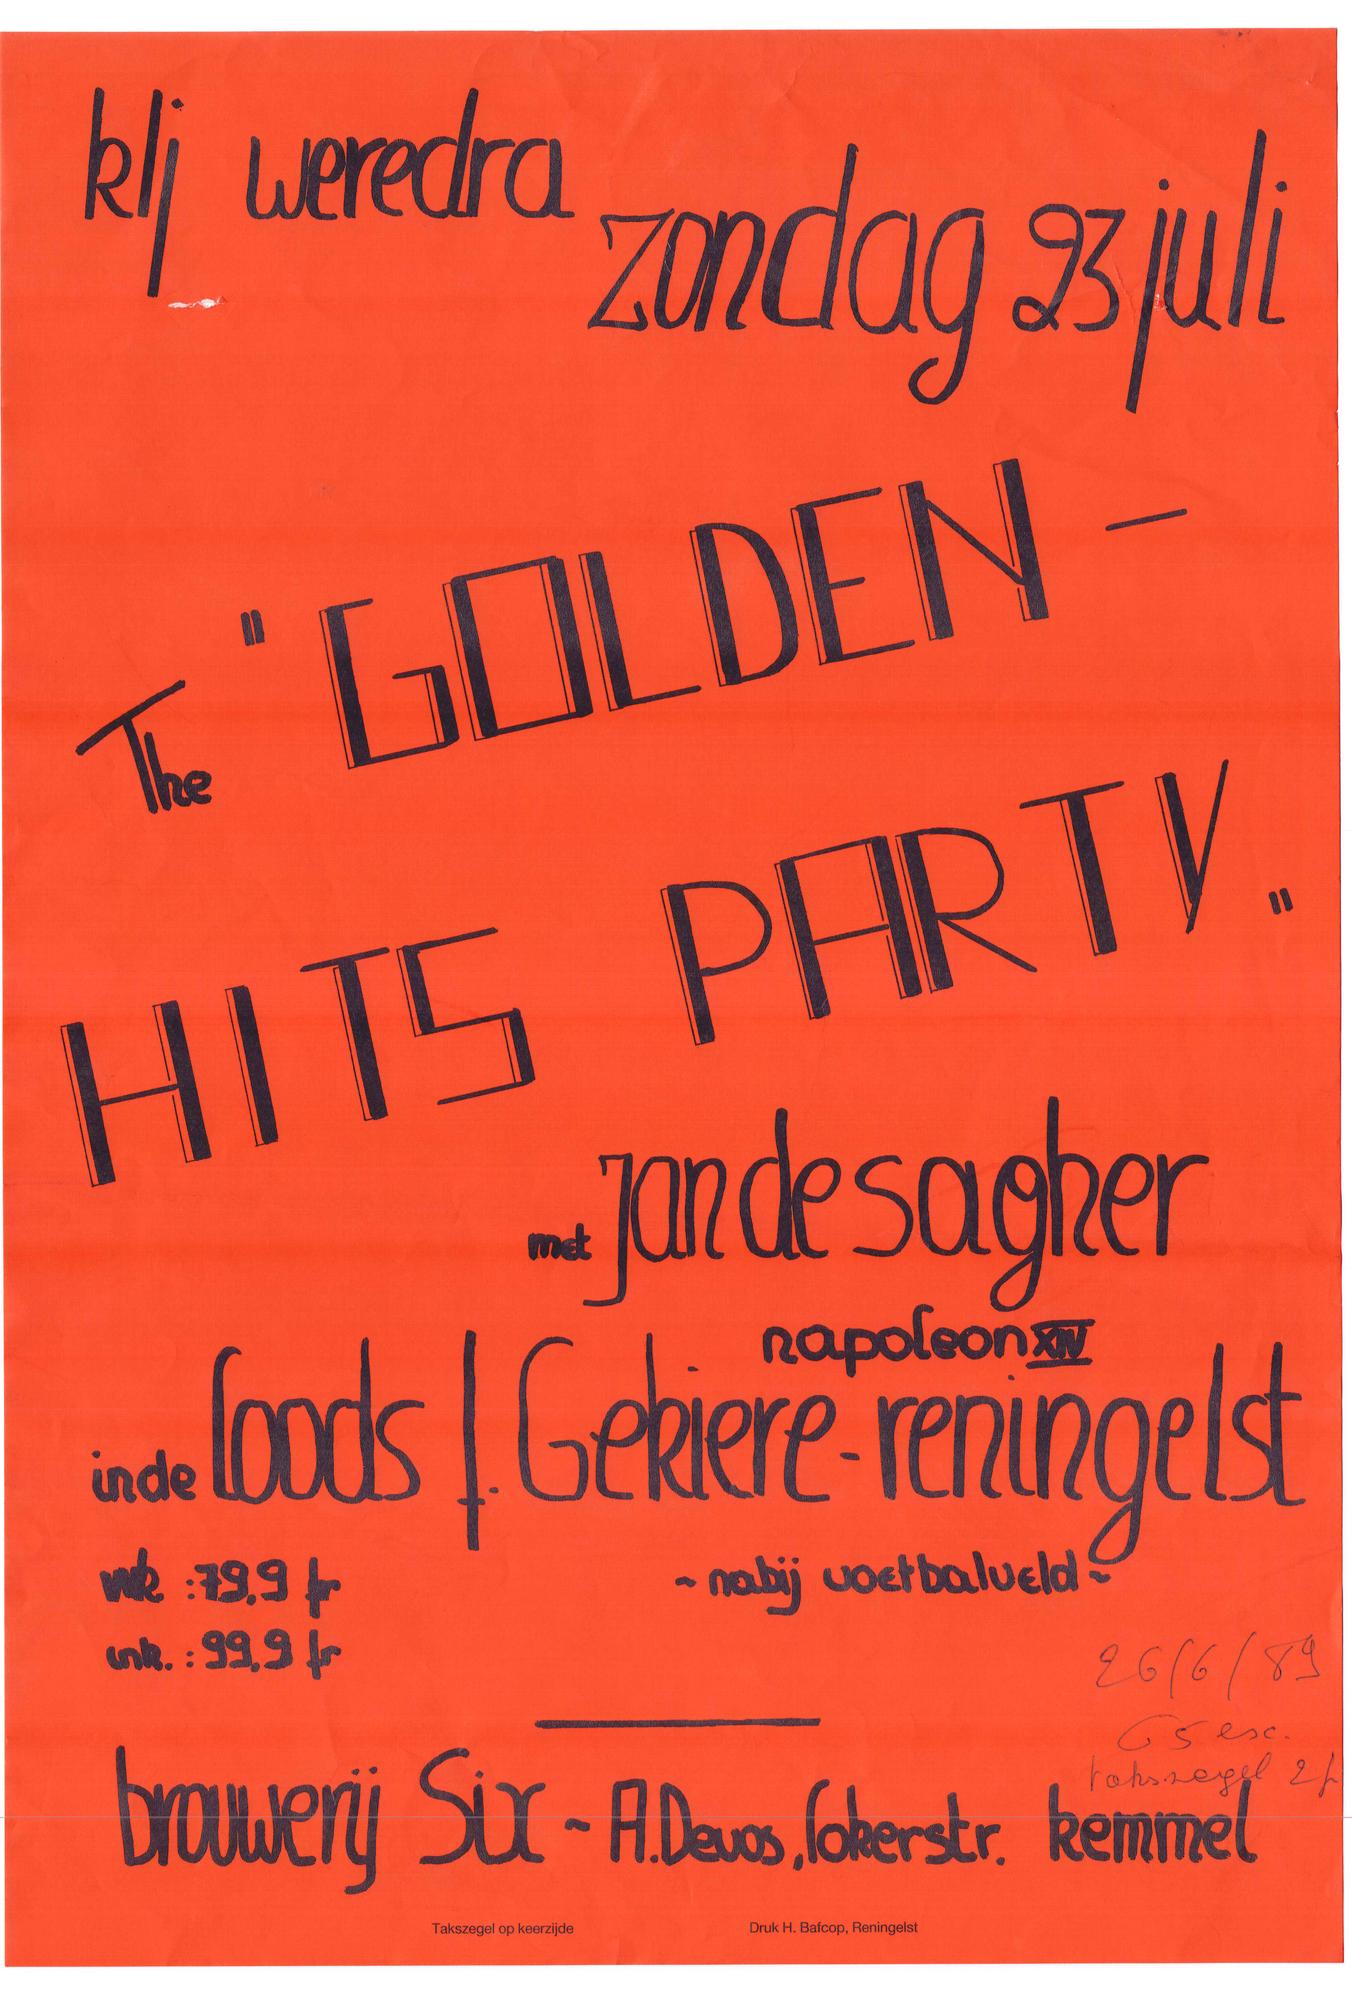 klj weredra
zondag 23 juli
The "GOLDEN -
HITS PARTY"
met jan de sagher
napoleon XIV
in de loods f. Gekiere - reningelst
vvk : 79,9 fr
~ nabij voetbalveld ~
ink. : 99,9 fr
26/6/89
65 ex.
takszegel 2f
brouwerij Six ~ A. Devos, lokerstr. kemmel
Takszegel op keerzijde
Druk H. Bafcop, Reningelst